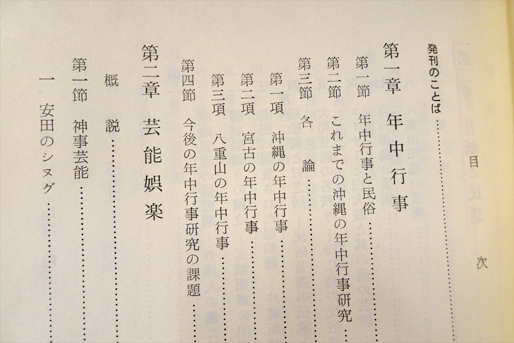 目次
発刊のことば
第一章 年中行事
第一節 年中行事と民俗
第二節 これまでの沖縄の年中行事研究
第三節 各論
第一項 沖縄の年中行事
第二項 宮古の年中行事
第三項 八重山の年中行事
第四節 今後の年中行事研究の課題
第二章 芸能娯楽
概説
第一節 神事芸能
一 安田のシヌグ